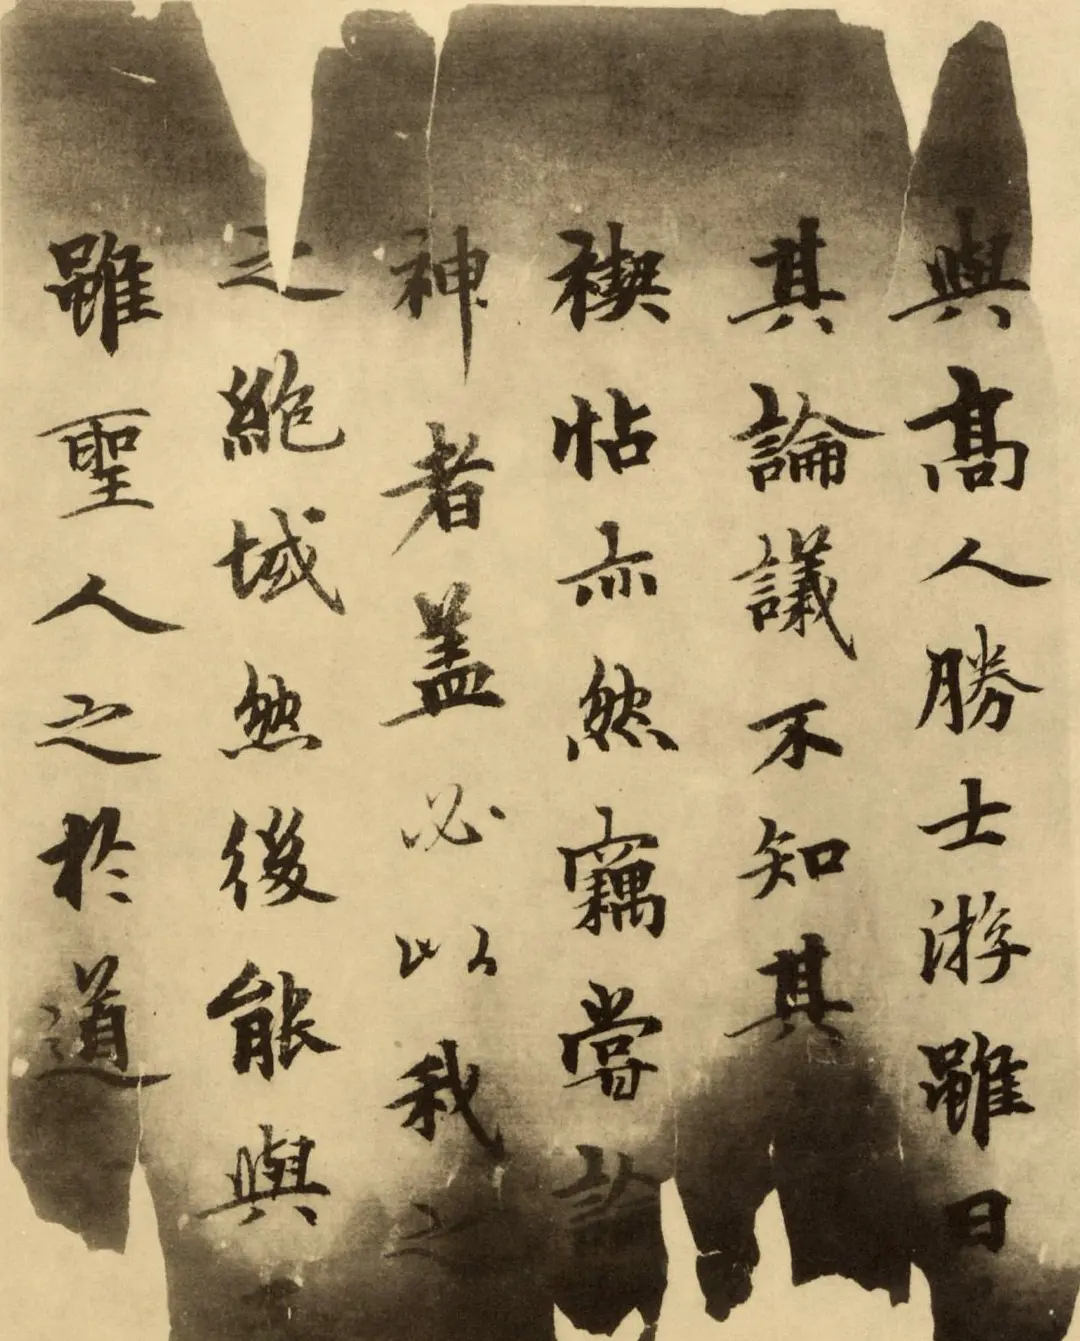 與高人勝士游雖日
其論議不知其
禊帖亦然竊嘗論
神者盖必以我之
之絶域然後能與
雖聖人之於道